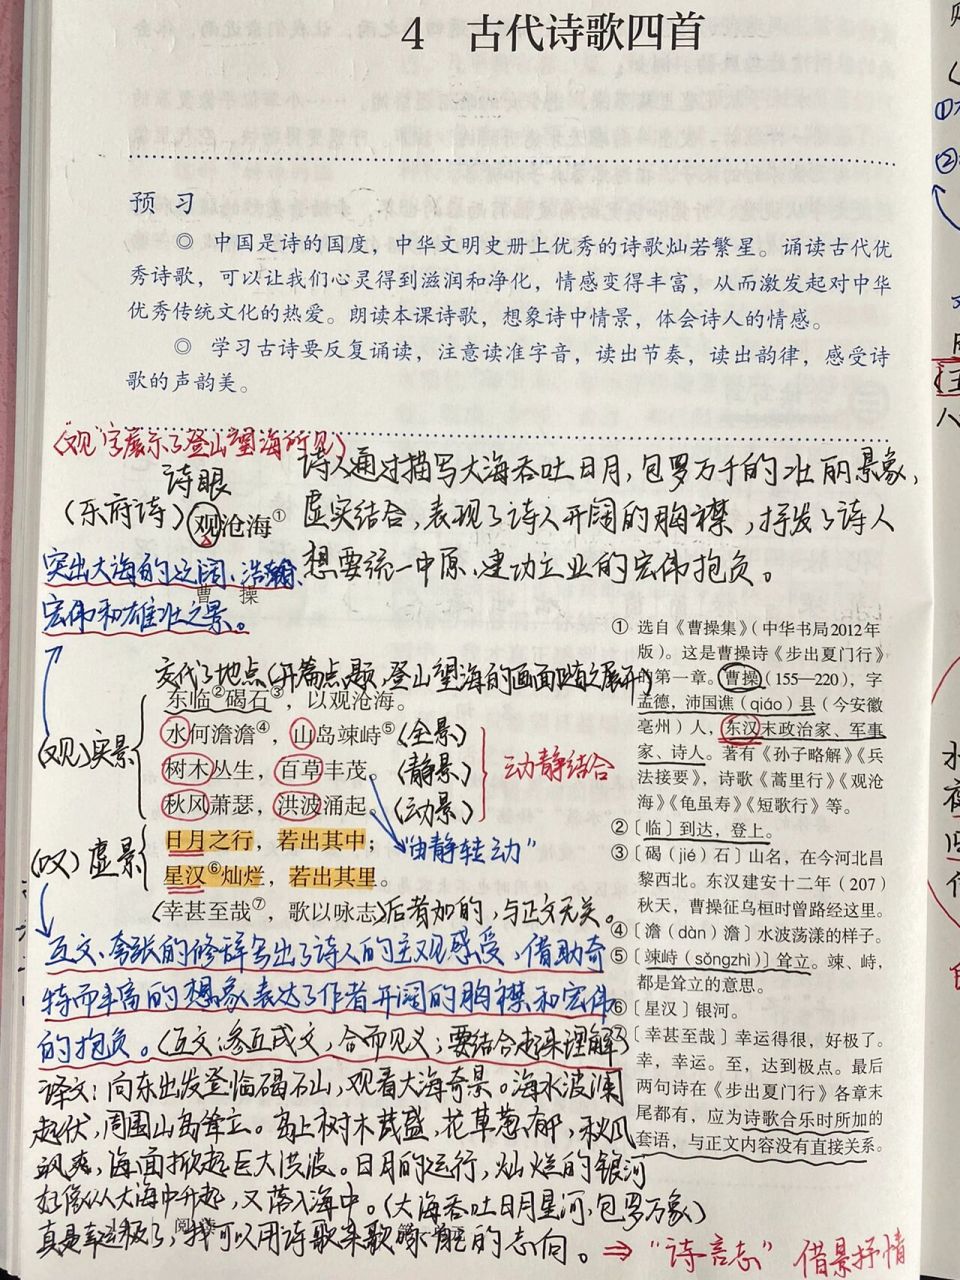 4 古代诗歌四首
预 习
◎ 中国是诗的国度，中华文明史册上优秀的诗歌灿若繁星。诵读古代优
秀诗歌，可以让我们心灵得到滋润和净化，情感变得丰富，从而激发起对中华
优秀传统文化的热爱。朗读本课诗歌，想象诗中情景，体会诗人的情感。
◎ 学习古诗要反复诵读，注意读准字音，读出节奏，读出韵律，感受诗
歌的声韵美。
（“观”字展示了登山望海所见）
诗眼
（东府诗）观沧海①
诗人通过描写大海吞吐日月，包罗万千的壮丽景象，
虚实结合，表现了诗人开阔的胸襟，抒发了诗人
想要统一中原，建功立业的宏伟抱负。
突出大海的辽阔、浩瀚、
宏伟和雄壮之景。
曹 操
交代了地点（开篇点题，登山望海的画面随之展开）
东临②碣石③，以观沧海。
（观）实景
水何澹澹④，山岛竦峙⑤（全景）
树木丛生，百草丰茂。（静景）
秋风萧瑟，洪波涌起。（动景）
动静结合
“由静转动”
（叹）虚景
日月之行，若出其中；
星汉⑥灿烂，若出其里。
（幸甚至哉⑦，歌以咏志）后者加的，与正文无关。
互文、夸张的修辞写出了诗人的主观感受，借助奇
特而丰富的想象表达了作者开阔的胸襟和宏伟
的抱负。（互文：参互成文，合而见义；要结合起来理解）
译文：向东出发登临碣石山，观看大海奇景。海水波澜
起伏，周围山岛耸立。岛上树木茂盛，花草葱郁，秋风
飒爽，海面掀起巨大洪波。日月的运行，灿烂的银河
好像从大海中升起，又落入海中。（大海吞吐日月星河，包罗万象）
真是幸运极了，我可以用诗歌来歌咏自己的志向。⇒“诗言志” 借景抒情
① 选自《曹操集》（中华书局2012年
版）。这是曹操诗《步出夏门行》
的第一章。曹操（155—220），字
孟德，沛国谯（qiáo）县（今安徽
亳州）人，东汉末政治家、军事
家、诗人。著有《孙子略解》《兵
法接要》，诗歌《蒿里行》《观沧
海》《龟虽寿》《短歌行》等。
②〔临〕到达，登上。
③〔碣（jié）石〕山名，在今河北昌
黎西北。东汉建安十二年（207）
秋天，曹操征乌桓时曾路经这里。
④〔澹（dàn）澹〕水波荡漾的样子。
⑤〔竦峙（sǒngzhì）〕耸立。竦、峙，
都是耸立的意思。
⑥〔星汉〕银河。
⑦〔幸甚至哉〕幸运得很，好极了。
幸，幸运。至，达到极点。最后
两句诗在《步出夏门行》各章末
尾都有，应为诗歌合乐时所加的
套语，与正文内容没有直接关系。